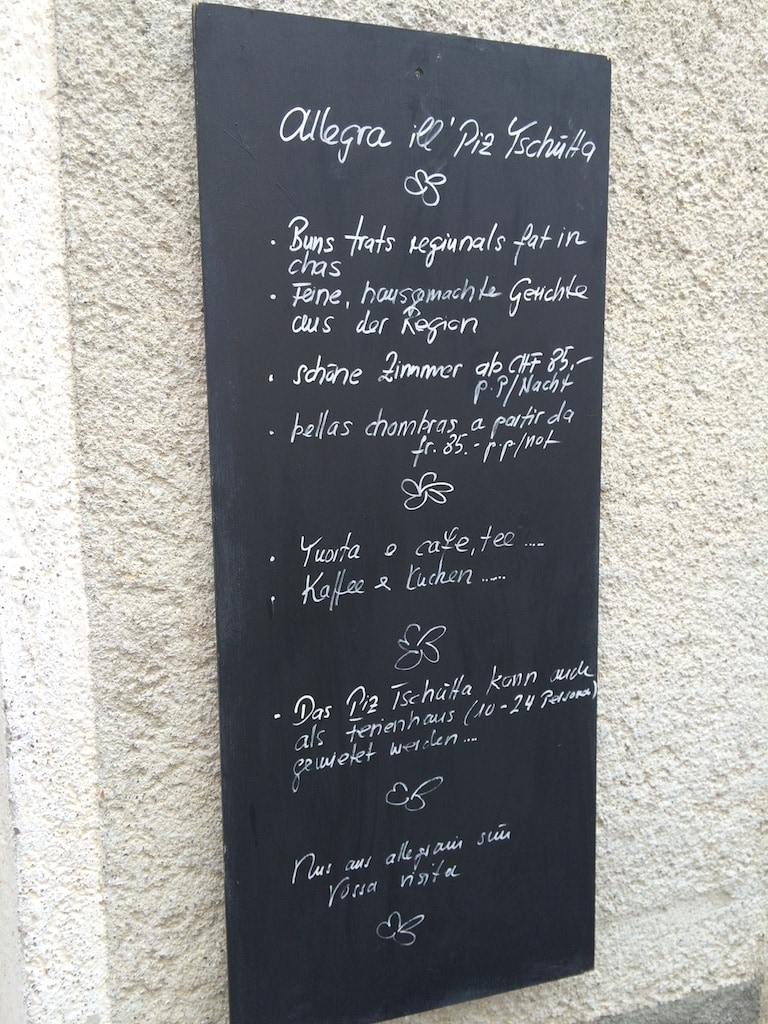 Allegra ill' Piz Tschütta
· Buns trats regiunals fat in
chas
· Feine, hausgemachte Gerichte
aus der Region
· schöne Zimmer ab CHF 85.-
p.P/Nacht
· bellas chombras a partir da
fr. 85.- p.p/not
· Tuorta e cafe, tee ....
· Kaffee & Kuchen .....
· Das Piz Tschütta kann auch
als Ferienhaus (10-24 Personen)
gemietet werden ...
Nus ans allegrain sün
Vossa visita